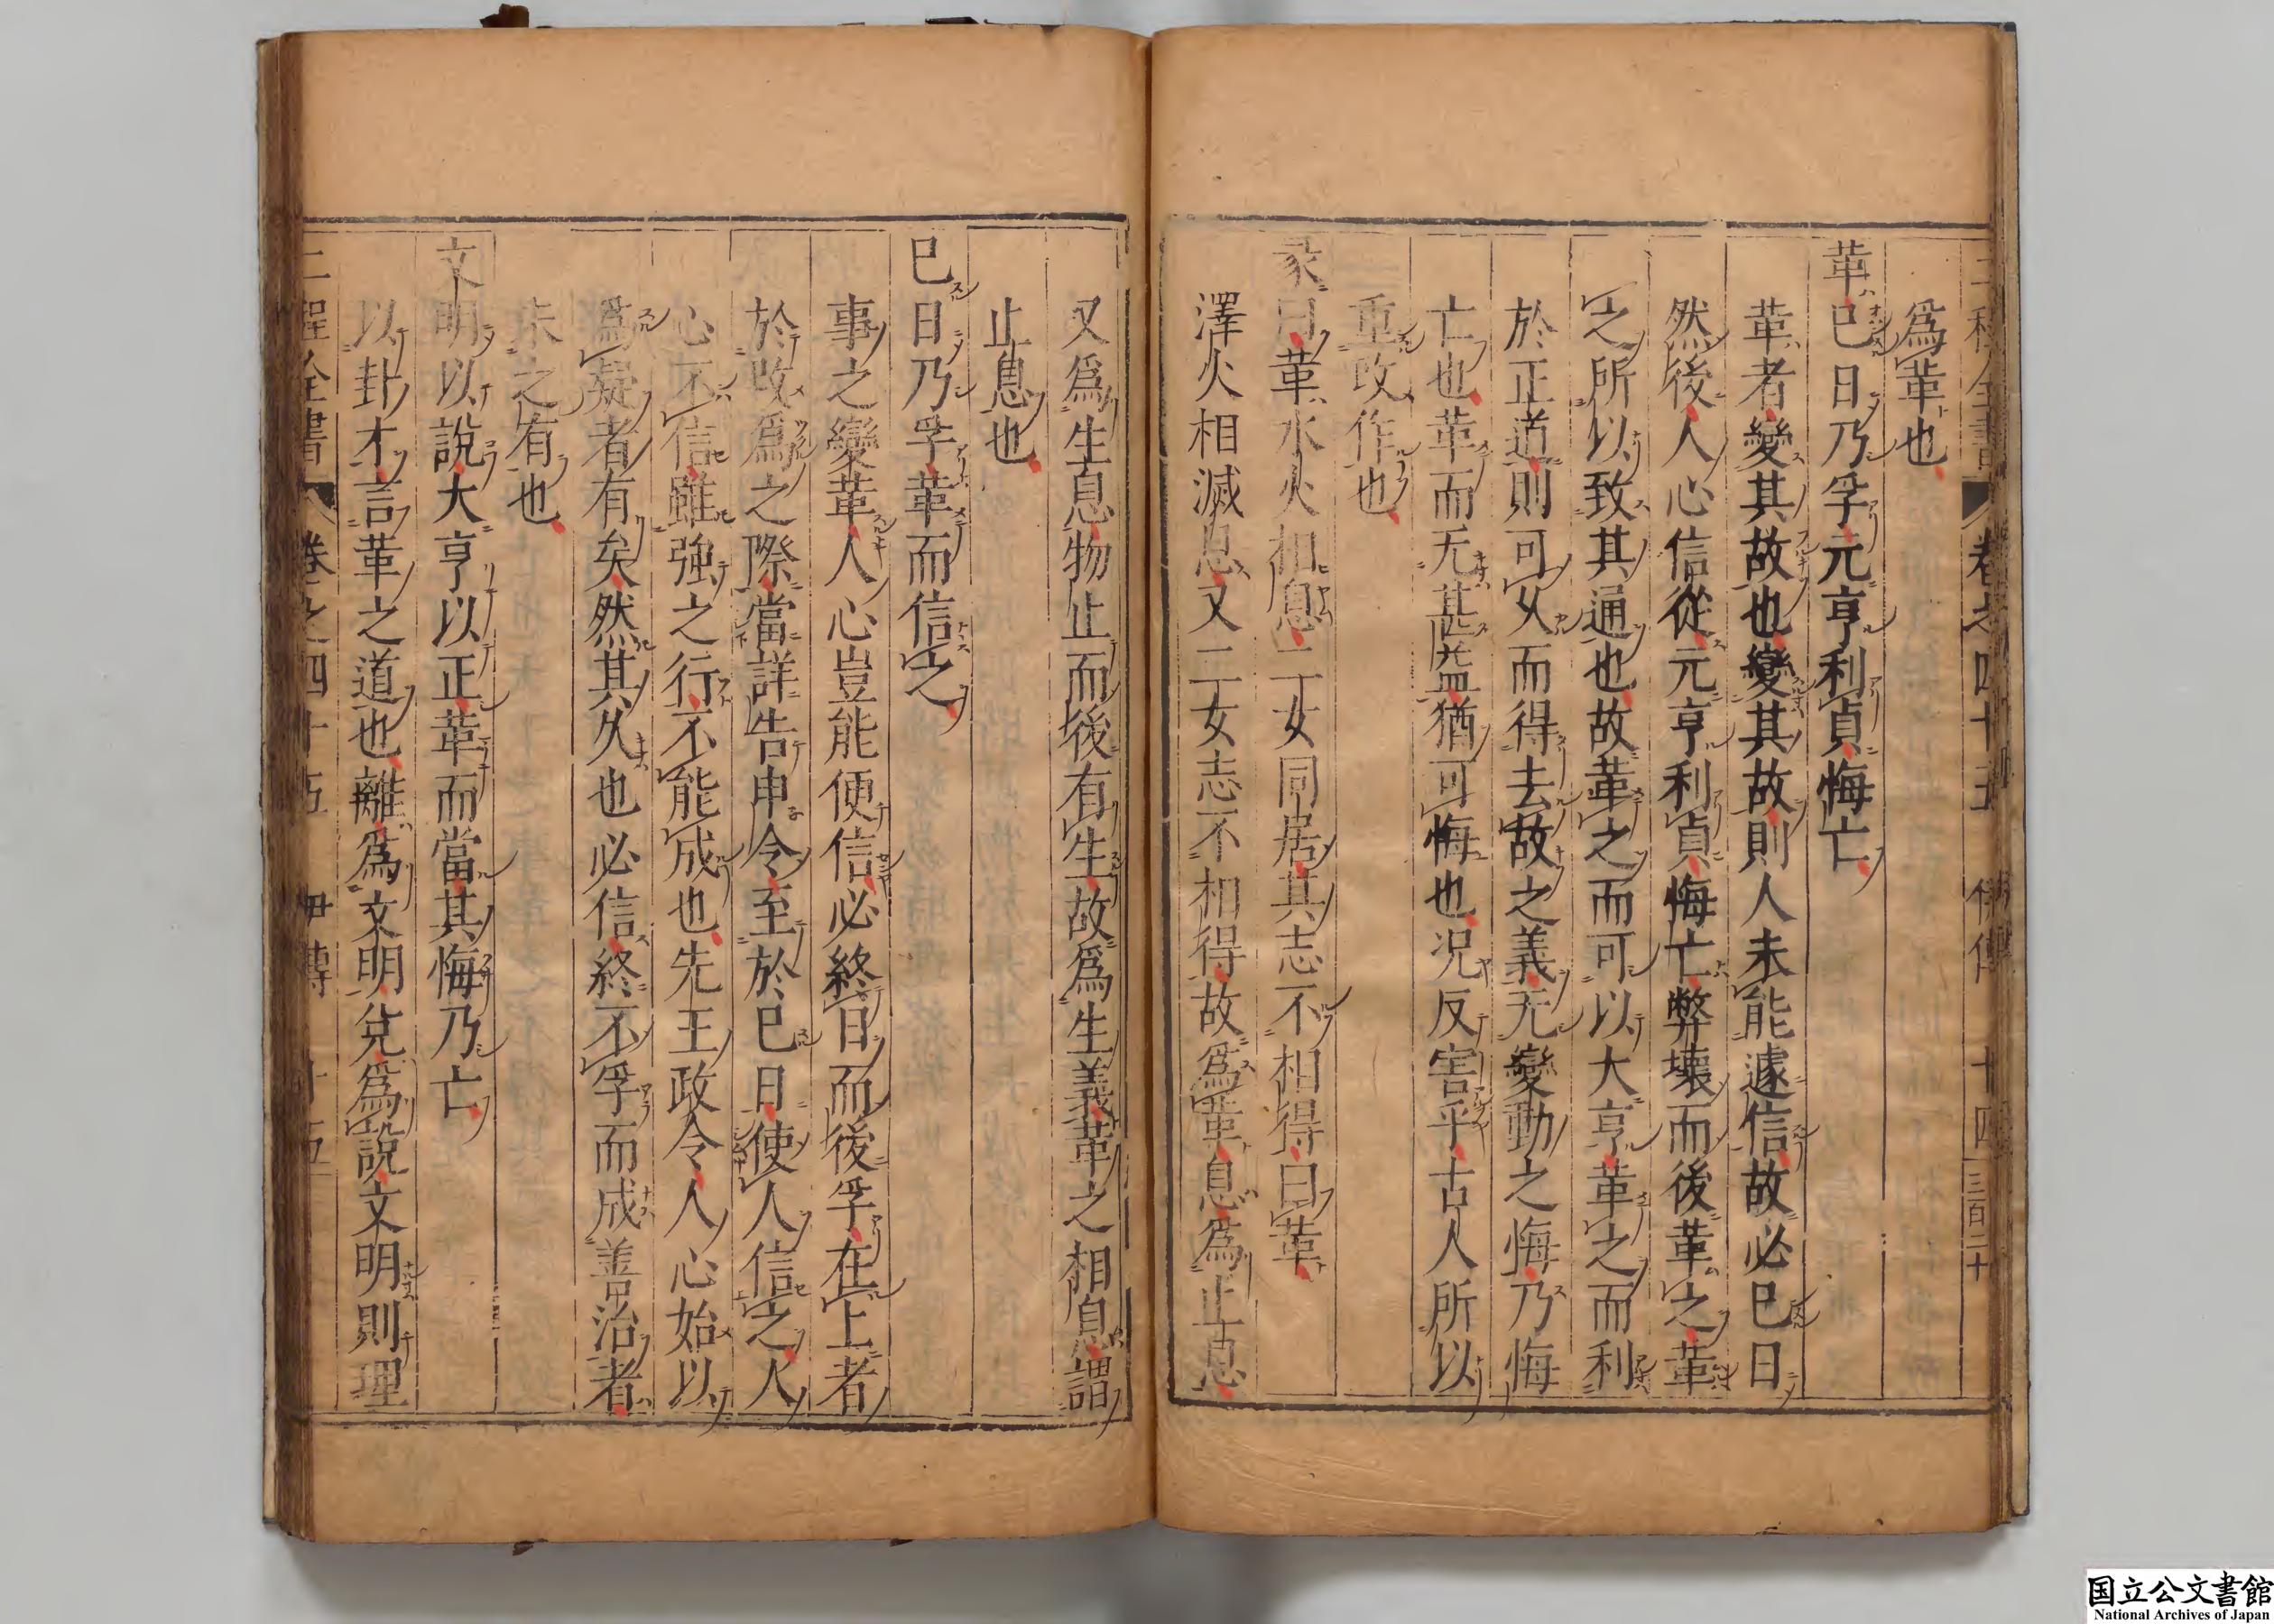 二程全書 卷之四十五 伊傳 十四 三百二十
爲革也
革巳日乃孚元亨利貞悔亡
革者變其故也變其故則人未能遽信故必巳日
然後人心信從元亨利貞悔亡弊壞而後革之革
之所以致其通也故革之而可以大亨革之而利
於正道則可久而得去故之義无變動之悔乃悔
亡也革而无甚益猶可悔也况反害乎古人所以
重改作也
彖曰革水火相息二女同居其志不相得曰革
澤火相滅息又二女志不相得故爲革息爲止息
又爲生息物止而後有生故爲生義革之相息謂
止息也
巳日乃孚革而信之
事之變革人心豈能便信必終日而後孚在上者
於改爲之際當詳告申令至於巳日使人信之人
心不信雖強之行不能成也先王政令人心始以
爲疑者有矣然其久也必信終不孚而成善治者
未之有也
文明以說大亨以正革而當其悔乃亡
以卦才言革之道也離爲文明兌爲說文明則理
二程全書 卷之四十五 伊傳 十五
国立公文書館
National Archives of Japan